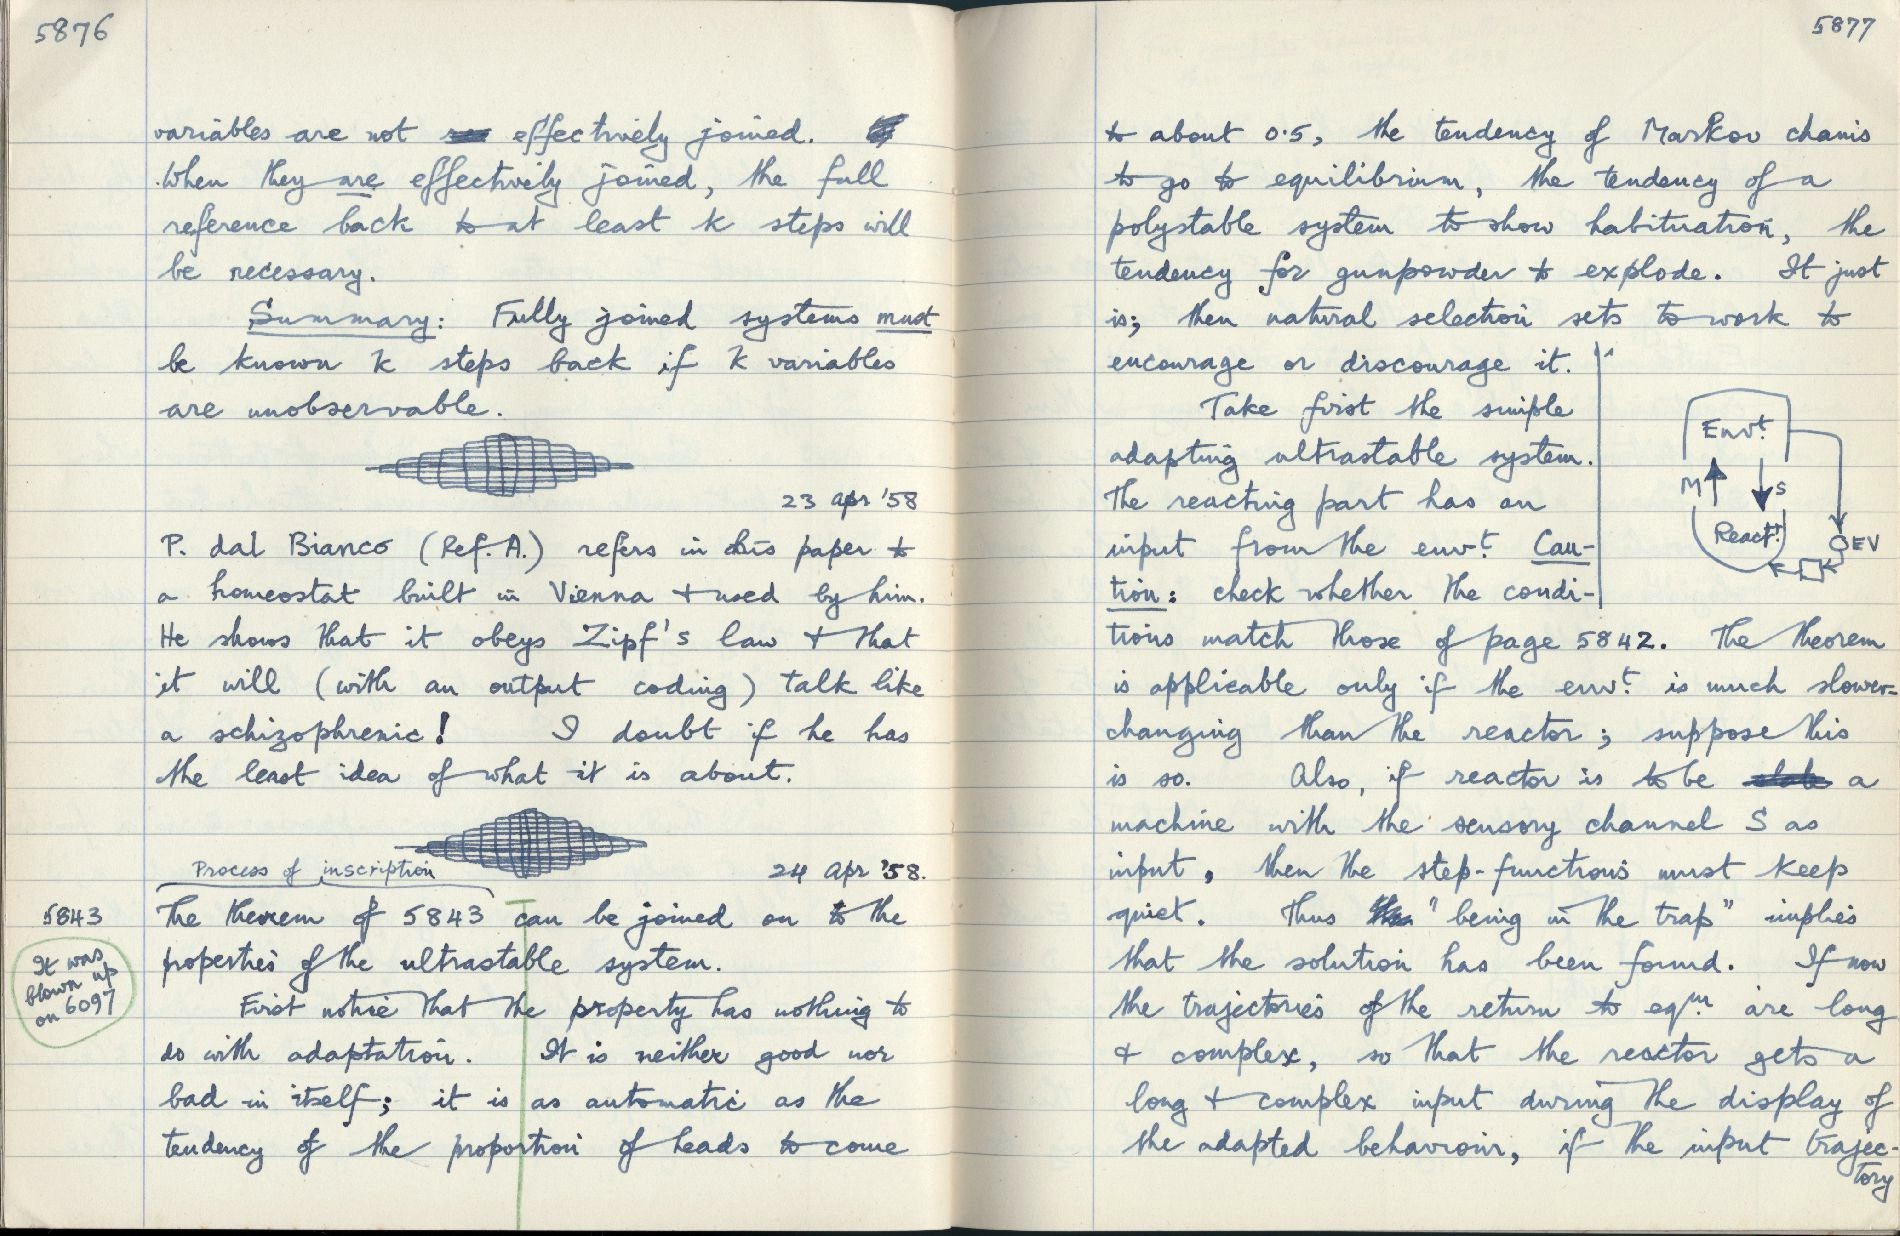 5876
variables are not effectively joined.
When they are effectively joined, the full
reference back to at least k steps will
be necessary.
Summary: Fully joined systems must
be known k steps back if k variables
are unobservable.
23 Apr '58
P. dal Bianco (Ref. A.) refers in his paper to
a homeostat built in Vienna + used by him.
He shows that it obeys Zipf's law + that
it will (with an output coding) talk like
a schizophrenic! I doubt if he has
the least idea of what it is about.
Process of inscription
24 Apr '58.
5843
The theorem of 5843 can be joined on to the
properties of the ultrastable system.
It was
blown up
on 6097
First notice that the property has nothing to
do with adaptation. It is neither good nor
bad in itself; it is as automatic as the
tendency of the proportion of heads to come
5877
to about 0.5, the tendency of Markov chains
to go to equilibrium, the tendency of a
polystable system to show habituation, the
tendency for gunpowder to explode. It just
is; then natural selection sets to work to
encourage or discourage it.
Take first the simple
adapting ultrastable system.
The reacting part has an
input from the envt. Cau-
tion: check whether the condi-
Envt.
M
S
Reactr.
EV
tions match those of page 5842. The theorem
is applicable only if the envt. is much slower-
changing than the reactor; suppose this
is so. Also, if reactor is to be a
machine with the sensory channel S as
input, then the step-functions must keep
quiet. Thus "being in the trap" implies
that the solution has been found. If now
the trajectories of the return to eqm. are long
+ complex, so that the reactor gets a
long + complex input during the display of
the adapted behaviour, if the input trajec-
tory